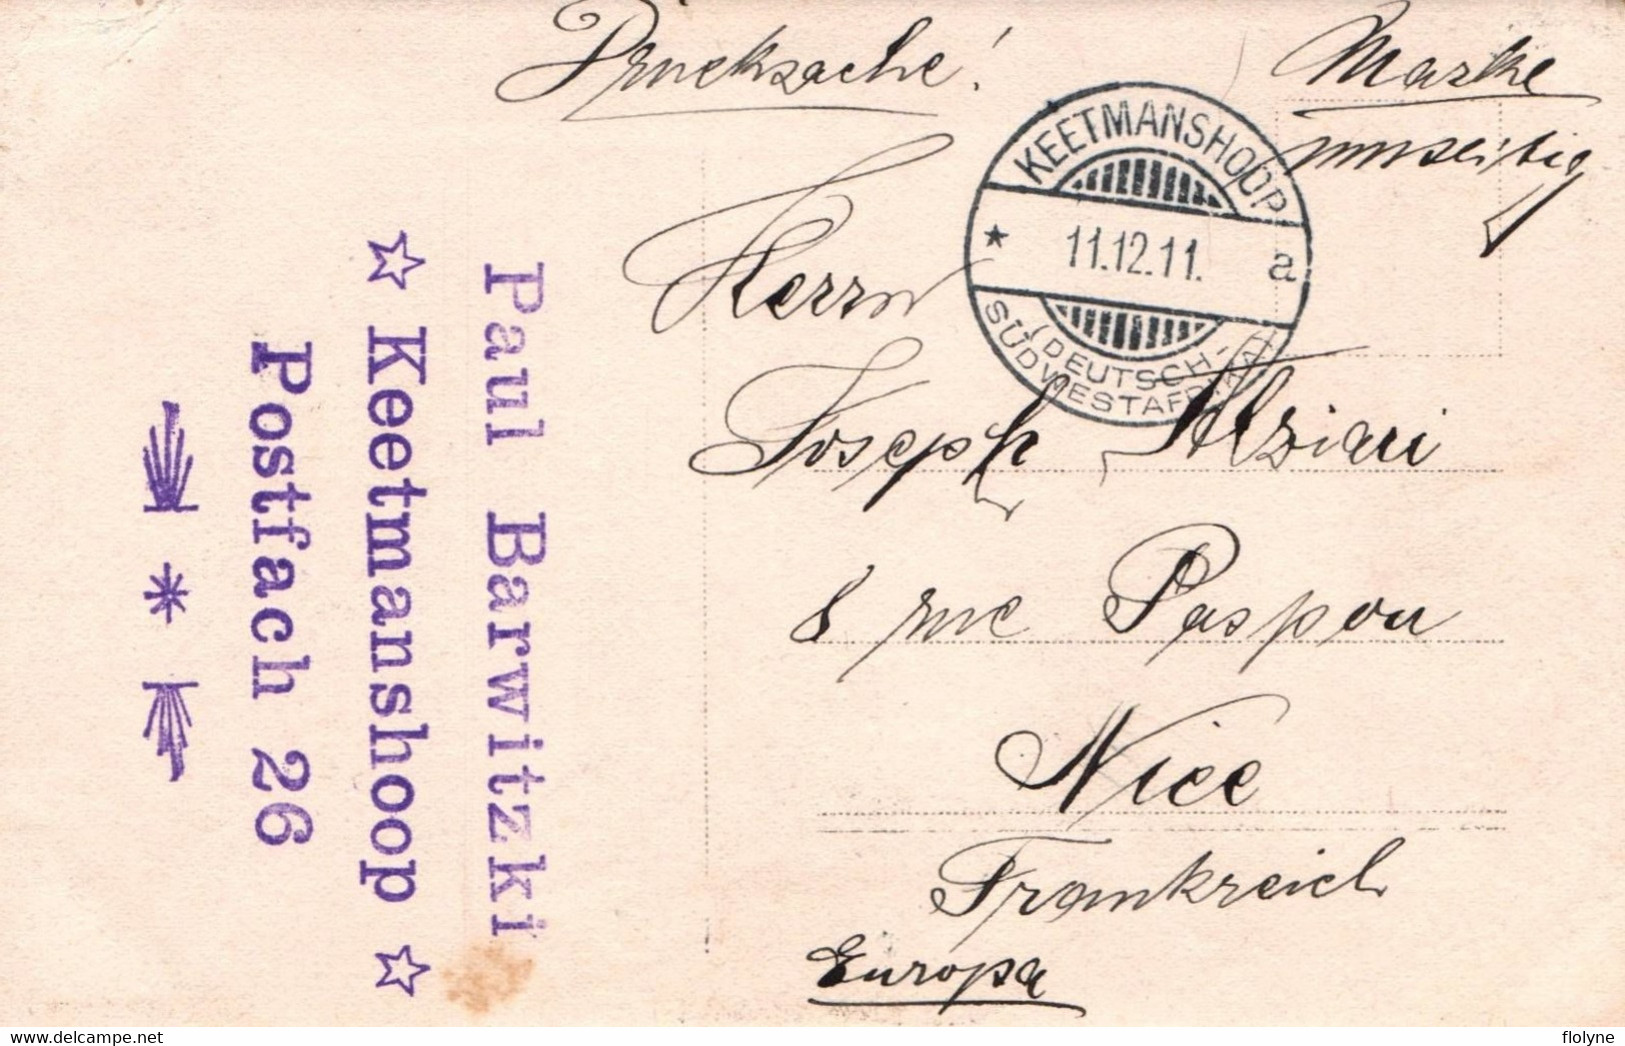 Drucksache!
Marke
umseitig
KEETMANSHOOP
* 11.12.11. a
(DEUTSCH-
SÜDWESTAFRIKA)
Herrn
Joseph Alziari
8 rue Paspou
Nice
Frankreich
Europa
Paul Barwitzki
☆ Keetmanshoop ☆
Postfach 26
delcampe.net
flolyne